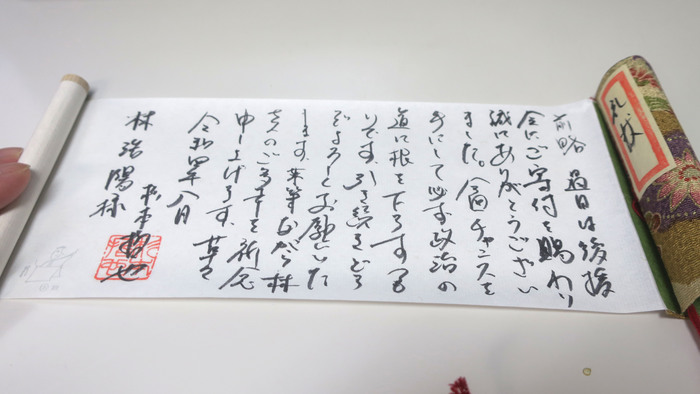 礼状
前略 過日は後援
会にご寄付を賜わり
誠にありがとうござい
ました。今回チャンスを
手にして必ず政治の
道に根を下ろすつも
りです。引き続きどう
ぞよろしくお願いいた
します。末筆ながら林
さんのご多幸を祈念
申し上げます。草々
令和四年八月
松本哲也
林 陽様